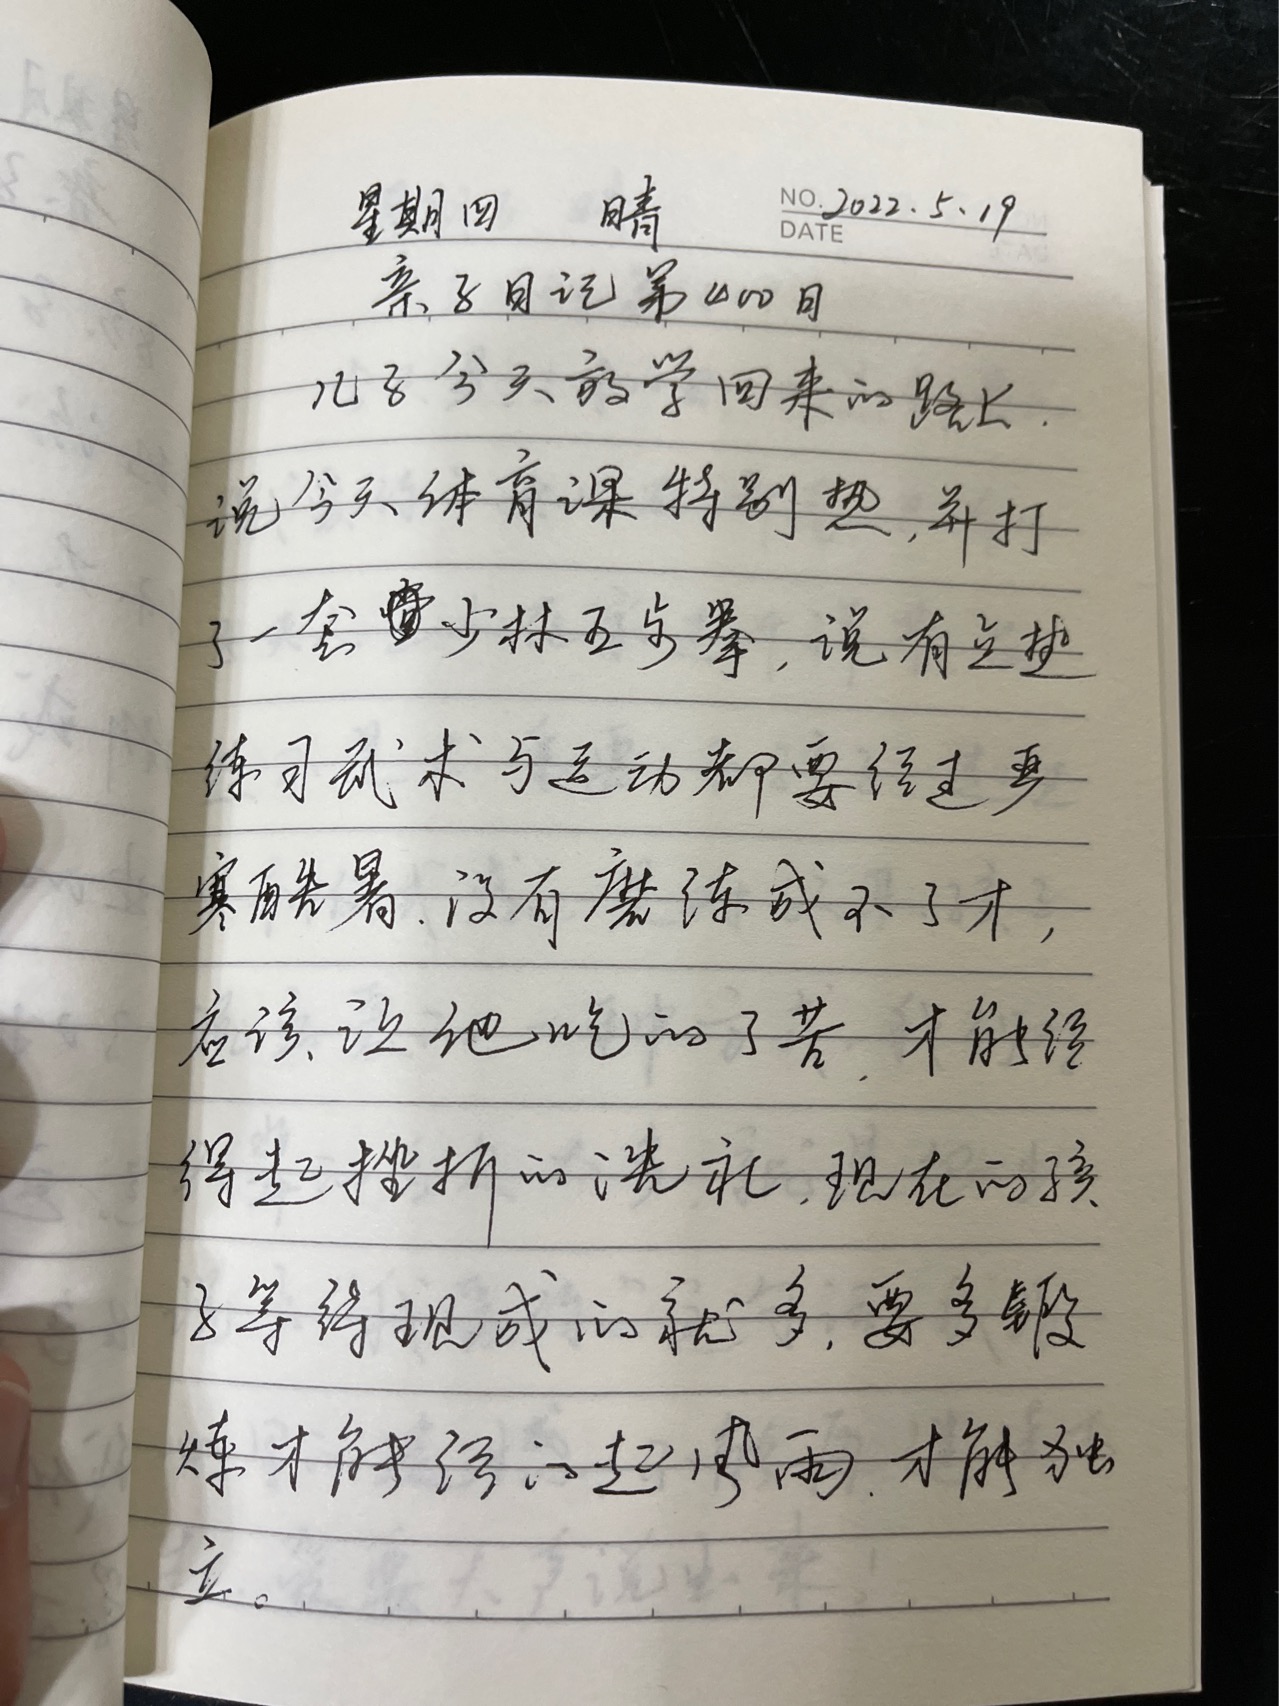 星期四 晴 NO. 2022.5.19
DATE
亲子日记第400日
儿子今天放学回来的路上.
说今天体育课特别热,并打
了一套少林五步拳,说有点热
练习武术与运动都要经过严
寒酷暑.没有磨练成不了才,
应该让他吃的了苦,才能经
得起挫折的洗礼,现在的孩
子等待现成的就多,要多锻
炼才能经的起风雨,才能独
立。